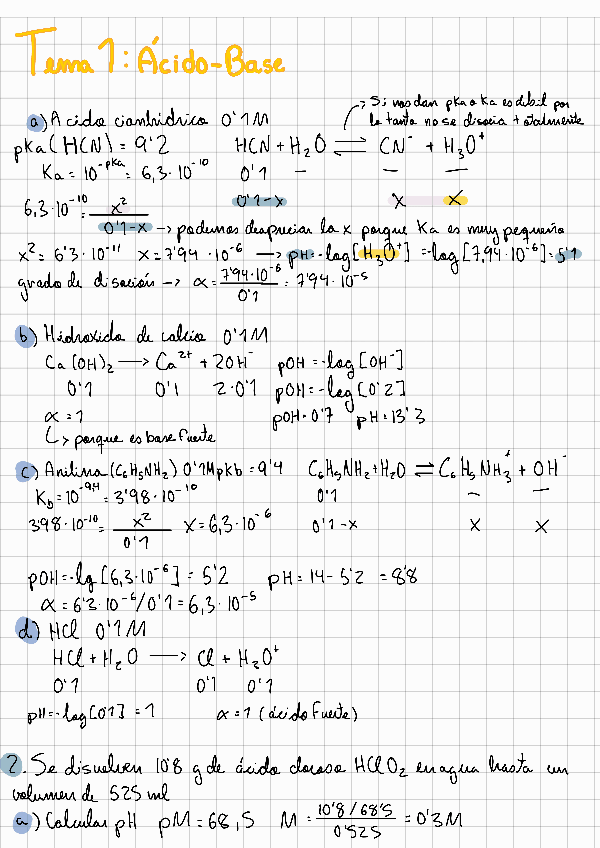 Tema 1: Ácido-Base
a) Acido cianhidrico 0'1M
→ Si nos dan pka o ka es debil por
lo tanto no se disocia totalmente
pKa(HCN) = 9'2 HCN + H₂O ⇌ CN⁻ + H₃O⁺
Ka = 10^-pka = 6,3·10⁻¹⁰ 0'1 — — —
6,3·10⁻¹⁰ = x² / 0'1-x 0'1-x x x
→ podemos despreciar la x porque Ka es muy pequeño
x² = 6'3·10⁻¹¹ x = 7'94·10⁻⁶ → pH = -log[H₃O⁺] = -log[7,94·10⁻⁶] = 5'1
grado de disoción → α = 7'94·10⁻⁶ / 0'1 = 7'94·10⁻⁵
b) Hidroxido de calcio 0'1M
Ca(OH)₂ → Ca²⁺ + 2OH⁻ pOH = -log[OH⁻]
0'1 0'1 2·0'1 pOH = -log[0'2]
α = 1 pOH = 0'7 pH = 13'3
↳ porque es base fuerte
c) Anilina (C₆H₅NH₂) 0'1M pkb = 9'4 C₆H₅NH₂ + H₂O ⇌ C₆H₅NH₃⁺ + OH⁻
K_b = 10^-9,4 = 3'98·10⁻¹⁰ 0'1 — —
3'98·10⁻¹⁰ = x² / 0'1 x = 6,3·10⁻⁶ 0'1-x x x
pOH = -lg[6,3·10⁻⁶] = 5'2 pH = 14 - 5'2 = 8'8
α = 6'3·10⁻⁶/0'1 = 6,3·10⁻⁵
d) HCl 0'1M
HCl + H₂O → Cl + H₃O⁺
0'1 0'1 0'1
pH = -log[0'1] = 1 α = 1 (ácido fuerte)
2. Se disuelven 10'8 g de ácido cloroso HClO₂ en agua hasta un
volumen de 525 ml
a) Calcular pH pM = 68,5 M = 10'8/68'5 / 0'525 = 0'3M